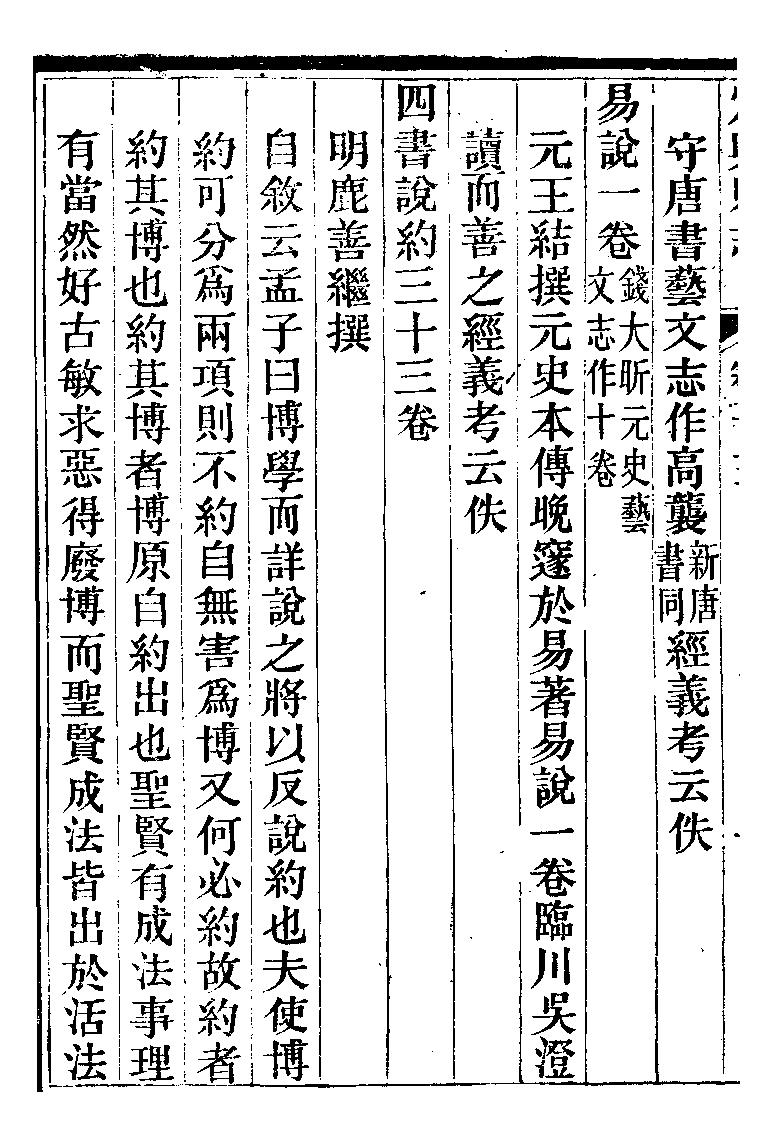 守唐書藝文志作高襲新唐書同經義考云佚
易說一卷錢大昕元史藝文志作十卷
元王結撰元史本傳晚邃於易著易說一卷臨川吳澄
讀而善之經義考云佚
四書說約三十三卷
明鹿善繼撰
自敘云孟子曰博學而詳說之將以反說約也夫使博
約可分爲兩項則不約自無害爲博又何必約故約者
約其博也約其博者博原自約出也聖賢有成法事理
有當然好古敏求惡得廢博而聖賢成法皆出於活法